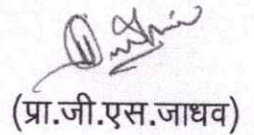 (प्रा.जी.एस.जाधव)